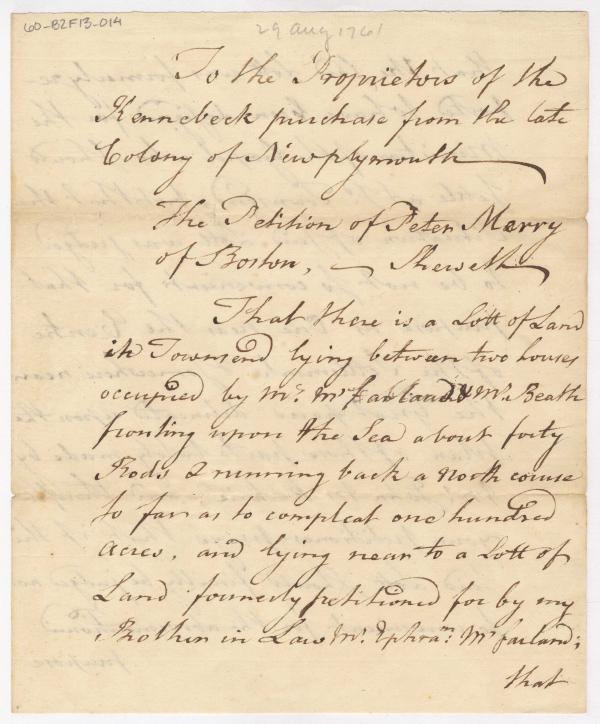 60-B2F13-014
29 Aug 1761
To the Proprietors of the
Kennebeck purchase from the late
Colony of Newplymouth
The Petition of Peter Merry
of Boston, Sheweth
That there is a Lott of Land
in Townsend lying between two houses
occupied by Mr. Mcfarland & Mr. Beath
fronting upon the Sea about forty
Rods & running back a North course
so far as to compleat one hundred
acres, and lying near to a Lott of
Land formerly petitioned for by my
Brother in Law Mr. Ephram. Mcfarland;
that